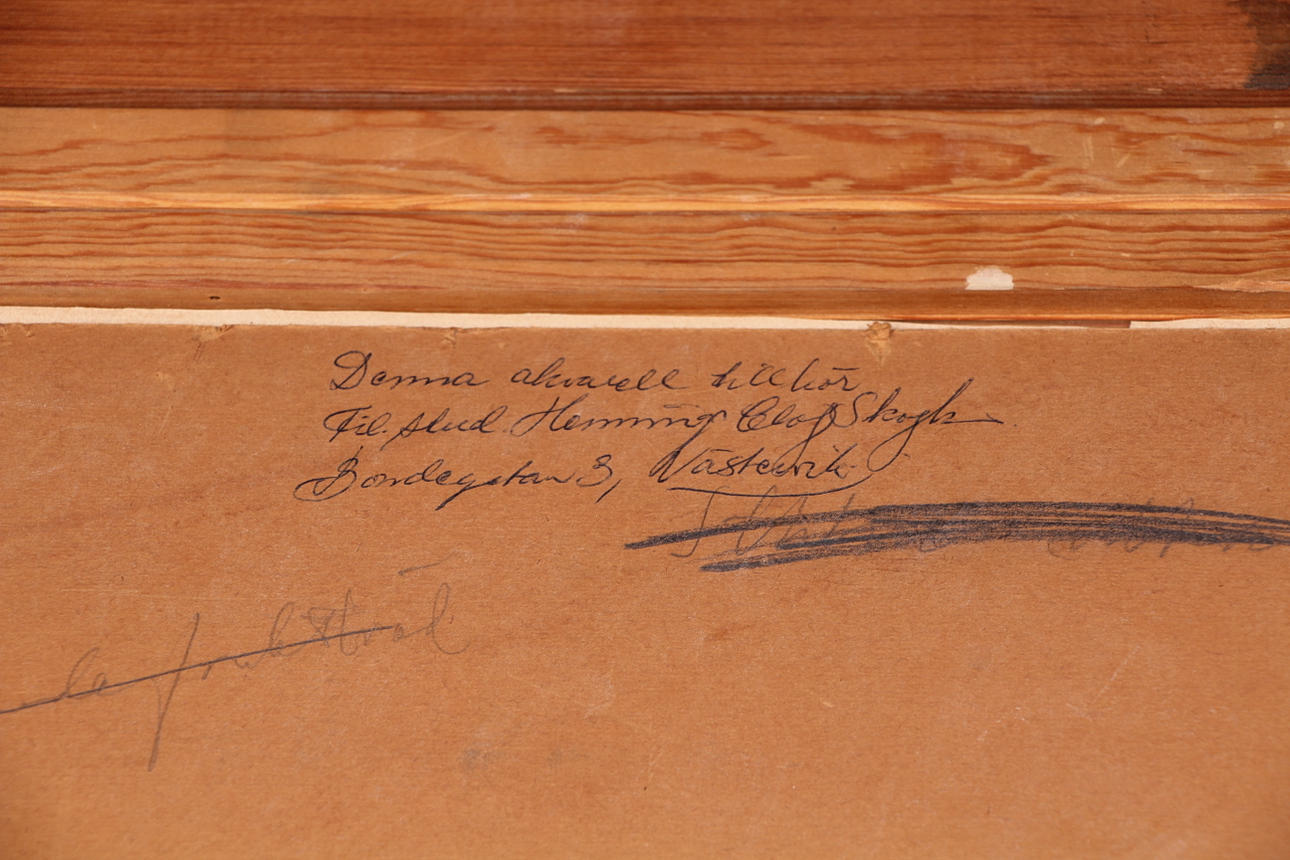 Denna akvarell tillhör
Fil. stud. Henning Olof Skogh
Bondegatan 3, Västervik.
fruktträd